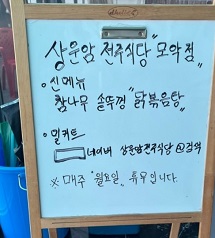 상운암 전주식당 "모악점"
○신메뉴
참나무 솥뚜껑 "닭볶음탕"
○밀키트
네이버 상운암전주식당 검색
※ 매주 "월요일" 휴무입니다.